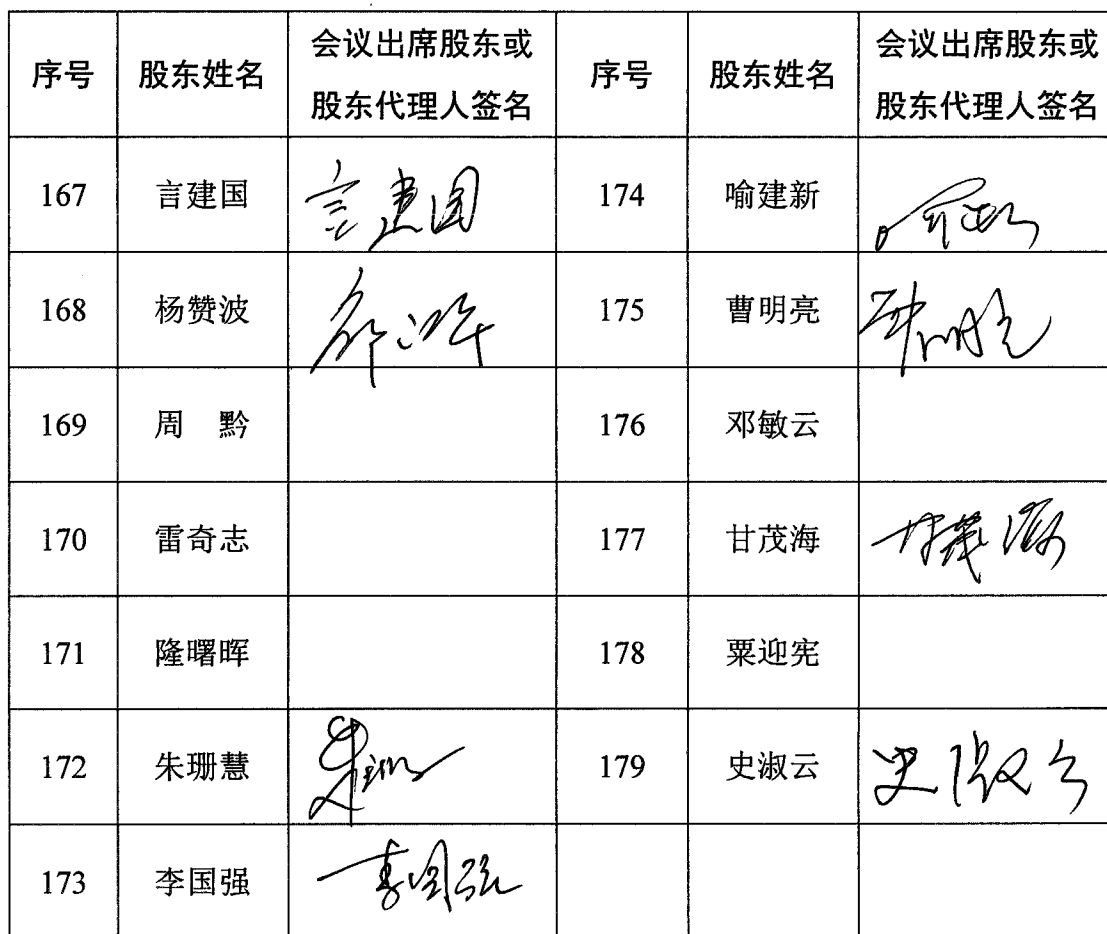 序号 股东姓名 会议出席股东或 序号 股东姓名 会议出席股东或
股东代理人签名 股东代理人签名
167 言建国 言建国 174 喻建新
168 杨赞波 175 曹明亮
169 周 黔 176 邓敏云
170 雷奇志 177 甘茂海
171 隆曙晖 178 粟迎宪
172 朱珊慧 179 史淑云 史淑云
173 李国强 李国强